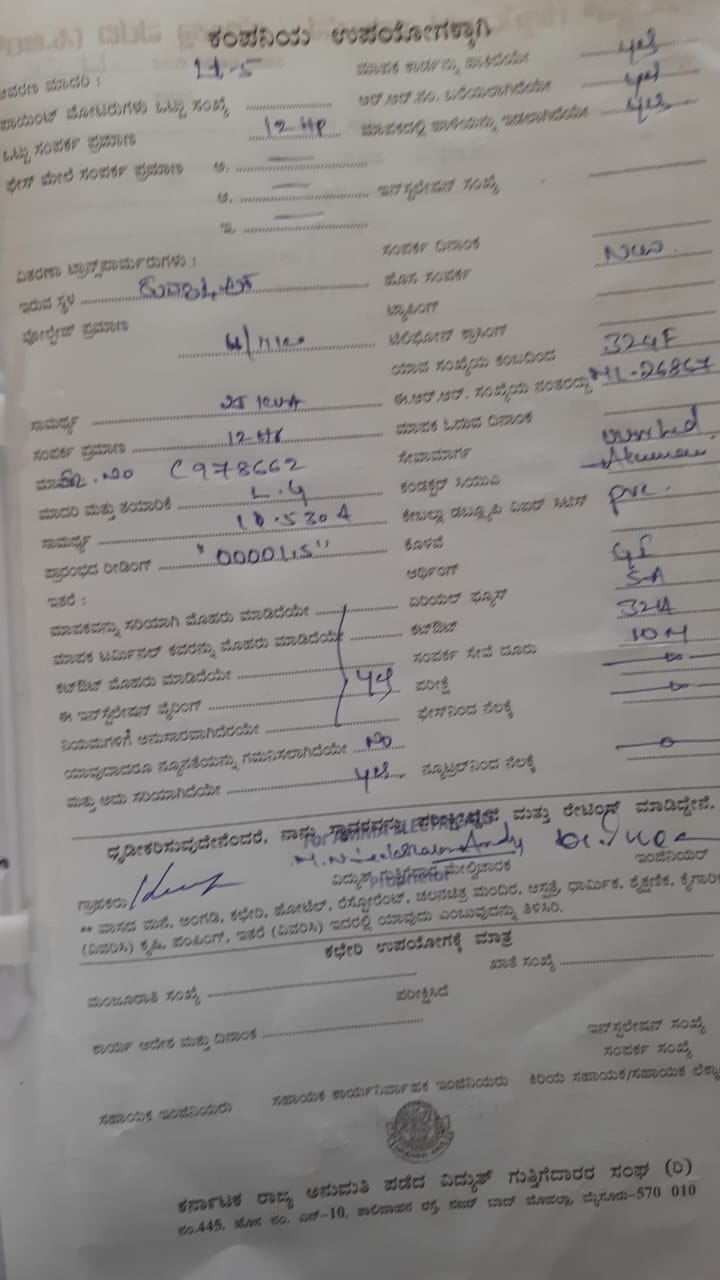 ಕಂಪನಿಯ ಉಪಯೋಗಕ್ಕಾಗಿ
ಆವರಣ ಮಾದರಿ : Lt-5 ಮಾಪಕ ಕಾರ್ಡನ್ನು ಹಾಕಿದೆಯೇ yes
ಪಾಯಿಂಟ್ ಮೋಟರುಗಳು ಒಟ್ಟು ಸಂಖ್ಯೆ ಆರ್.ಆರ್.ಸಂ. ಬರೆಯಲಾಗಿದೆಯೇ yes
ಒಟ್ಟು ಸಂಪರ್ಕ ಪ್ರಮಾಣ 12 HP ಮಾಪಕದಲ್ಲಿ ಹಾಳೆಯನ್ನು ಇಡಲಾಗಿದೆಯೇ yes
ಫೇಸ್ ಮೇಲೆ ಸಂಪರ್ಕ ಪ್ರಮಾಣ ಅ.
ಆ. ಇನ್‌ಸ್ಟಲೇಷನ್ ಸಂಖ್ಯೆ
ಇ.
ಸಂಪರ್ಕ ದಿನಾಂಕ
ವಿತರಣಾ ಟ್ರಾನ್ಸ್‌ಫಾರ್ಮರುಗಳು : ಹೊಸ ಸಂಪರ್ಕ New
ಇರುವ ಸ್ಥಳ ಟ್ಯಾಪಿಂಗ್
ವೋಲ್ಟೇಜ್ ಪ್ರಮಾಣ ಟೆಲಿಫೋನ್ ಕ್ರಾಸಿಂಗ್
ಯಾವ ಸಂಖ್ಯೆಯ ಕಂಬದಿಂದ 324F
ಸಾಮರ್ಥ್ಯ 25 KVA ಈ.ಆರ್.ಆರ್. ಸಂಖ್ಯೆಯ ನಂತರದ್ದು ML-26867
ಸಂಪರ್ಕ ಪ್ರಮಾಣ 12-HP ಮಾಪಕ ಓದುವ ದಿನಾಂಕ
Sl. No C978662 ಸೇವಾಮಾರ್ಗ
ಮಾದರಿ ಮತ್ತು ತಯಾರಿಕೆ L.G ಕಂಡಕ್ಟರ್ ಸಿಯುವಿ
ಸಾಮರ್ಥ್ಯ pvc.
ಪ್ರಾರಂಭದ ರೀಡಿಂಗ್ ಕೊಳವೆ
ಇತರೆ : ಅರ್ಥಿಂಗ್ GI
ಮಾಪಕವನ್ನು ಸರಿಯಾಗಿ ಮೊಹರು ಮಾಡಿದೆಯೇ ಏರಿಯಲ್ ಫ್ಯೂಸ್ 5-A
ಮಾಪಕ ಟರ್ಮಿನಲ್ ಕವರನ್ನು ಮೊಹರು ಮಾಡಿದೆಯೇ ಕಟ್‌ಔಟ್ 32A
ಕಟ್‌ಔಟ್ ಮೊಹರು ಮಾಡಿದೆಯೇ ಸಂಪರ್ಕ ಸೇವೆ ದೂರು 10 M
ಈ ಇನ್‌ಸ್ಟಲೇಷನ್ ವೈರಿಂಗ್ yes ಪರೀಕ್ಷೆ
ನಿಯಮಗಳಿಗೆ ಅನುಸಾರವಾಗಿದೆಯೇ ಫೇಸ್‌ನಿಂದ ನೆಲಕ್ಕೆ
ಯಾವುದಾದರೂ ನ್ಯೂನತೆಯನ್ನು ಗಮನಿಸಲಾಗಿದೆಯೇ No
ಮತ್ತು ಅದು ಸರಿಯಾಗಿದೆಯೇ yes ನ್ಯೂಟ್ರಲ್‌ನಿಂದ ನೆಲಕ್ಕೆ
ಧೃಢೀಕರಿಸುವುದೇನೆಂದರೆ, ನಾನು ಸ್ಥಾವರವನ್ನು ಪರೀಕ್ಷಿಸಿದ್ದೇನೆ ಮತ್ತು ರೇಟಿಂಗ್ ಮಾಡಿದ್ದೇನೆ.
ಗ್ರಾಹಕರು ವಿದ್ಯುತ್ ಗುತ್ತಿಗೆದಾರ ಮೇಲ್ವಿಚಾರಕ ಇಂಜಿನಿಯರ್
** ವಾಸದ ಮನೆ, ಅಂಗಡಿ, ಕಛೇರಿ, ಹೋಟೆಲ್, ರೆಸ್ಟೋರೆಂಟ್, ಚಲನಚಿತ್ರ ಮಂದಿರ, ಆಸ್ಪತ್ರೆ, ಧಾರ್ಮಿಕ, ಶೈಕ್ಷಣಿಕ,
(ವಿವರಿಸಿ) ಕೃಷಿ, ಪಂಪಿಂಗ್, ಇತರೆ (ವಿವರಿಸಿ) ಇದರಲ್ಲಿ ಯಾವುದು ಎಂಬುವುದನ್ನು ತಿಳಿಸಿರಿ.
ಕಛೇರಿ ಉಪಯೋಗಕ್ಕೆ ಮಾತ್ರ
ಮಂಜೂರಾತಿ ಸಂಖ್ಯೆ ಖಾತೆ ಸಂಖ್ಯೆ
ಪರೀಕ್ಷಿಸಿದೆ
ಕಾರ್ಯ ಆದೇಶ ಮತ್ತು ದಿನಾಂಕ ಇನ್‌ಸ್ಟಲೇಷನ್ ಸಂಖ್ಯೆ
ಸಂಪರ್ಕ ಸಂಖ್ಯೆ
ಸಹಾಯಕ ಇಂಜಿನಿಯರು ಸಹಾಯಕ ಕಾರ್ಯನಿರ್ವಾಹಕ ಇಂಜಿನಿಯರು ಕಿರಿಯ ಸಹಾಯಕ/ಸಹಾಯಕ
ಕರ್ನಾಟಕ ರಾಜ್ಯ ಅನುಮತಿ ಪಡೆದ ವಿದ್ಯುತ್ ಗುತ್ತಿಗೆದಾರರ ಸಂಘ (ರಿ)
ನಂ.445, ಹೊಸ ನಂ. ಎನ್-10, ಶಾಲಿವಾಹನ ರಸ್ತೆ, ನಜರ್ ಬಾದ್ ಮೊಹಲ್ಲಾ, ಮೈಸೂರು-570 010